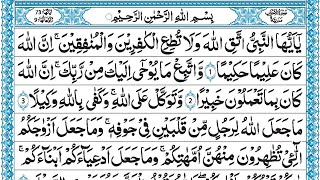 بِسْمِ اللّٰهِ الرَّحْمٰنِ الرَّحِيْمِ
يٰۤاَيُّهَا النَّبِيُّ اتَّقِ اللّٰهَ وَلَا تُطِعِ الْكٰفِرِيْنَ وَالْمُنٰفِقِيْنَ ؕ اِنَّ اللّٰهَ
كَانَ عَلِيْمًا حَكِيْمًا ۙ 1 وَّاتَّبِعْ مَا يُوْحٰۤى اِلَيْكَ مِنْ رَّبِّكَ ؕ اِنَّ اللّٰهَ
كَانَ بِمَا تَعْمَلُوْنَ خَبِيْرًا ۙ 2 وَّتَوَكَّلْ عَلَى اللّٰهِ ؕ وَكَفٰى بِاللّٰهِ وَكِيْلًا 3
مَا جَعَلَ اللّٰهُ لِرَجُلٍ مِّنْ قَلْبَيْنِ فِيْ جَوْفِهٖ ۚ وَمَا جَعَلَ اَزْوَاجَكُمُ
الّٰٓـِٔيْ تُظٰهِرُوْنَ مِنْهُنَّ اُمَّهٰتِكُمْ ۚ وَمَا جَعَلَ اَدْعِيَآءَكُمْ اَبْنَآءَكُمْ ؕ